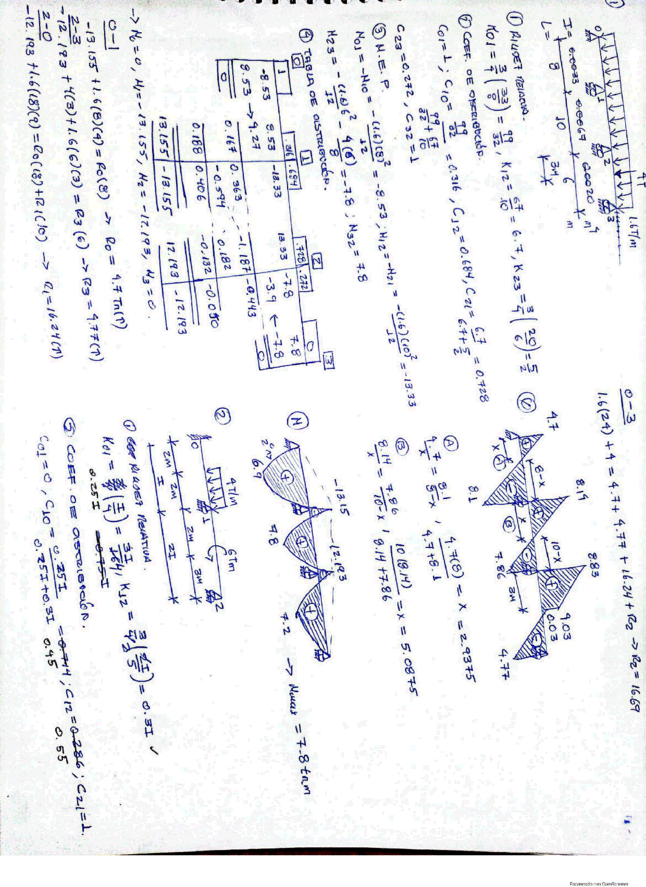 ①
4T
1.6T/m
0 1 2 3
I = 0.0033 0.0067 0.0020 m4
L = 8 10 6 m
3m
① RIGIDEZ RELATIVA.
K01 = 3/4 (33/8) = 99/32 , K12 = 67/10 = 6.7 , K23 = 3/4 (20/6) = 5/2
② COEF. DE DISTRIBUCIÓN.
C01 = 1 ; C10 = (99/32)/(99/32 + 67/10) = 0.316 , C12 = 0.684 , C21 = 6.7/(6.7 + 5/2) = 0.728
C23 = 0.272 , C32 = 1
③ M.E.P
M01 = -M10 = -(1.6)(8)²/12 = -8.53 , M12 = -M21 = -(1.6)(10)²/12 = -13.33
M23 = -(1.6)6²/12 - 4(6)/8 = -7.8 ; M32 = 7.8
④ TABLA DE DISTRIBUCIÓN.
0 1 2 3
1 .316 .684 .728 .272 0
-8.53 8.53 -13.33 13.33 -7.8 7.8
8.53 → 4.27 -3.9 ← -7.8
0 0.167 0.363 -1.187 -0.443 0
-0.594 0.182
0.188 0.406 -0.132 -0.050
13.155 -13.155 12.193 -12.193
→ M0 = 0 , M1 = -13.155 , M2 = -12.193 , M3 = 0.
0-1
-13.155 + 1.6(8)(4) = R0(8) → R0 = 4.7 Tn(↑)
2-3
-12.193 + 4(3) + 1.6(6)(3) = R3(6) → R3 = 4.77(↑)
2-0
-12.193 + 1.6(18)(9) = R0(18) + R1(10) → R1 = 16.24(↑)
0-3
1.6(24) + 4 = 4.7 + 4.77 + 16.24 + R2 → R2 = 16.69
Ⓥ
4.7 8.14 8.83
8-x 10-x 9.03
x 3m 0.03
8.1 7.86 4.77
Ⓐ
4.7/x = 8.1/(8-x) , 4.7(8)/(4.7+8.1) = x = 2.9375
Ⓑ
8.14/x = 7.86/(10-x) , 10(8.14)/(8.14+7.86) = x = 5.0875
Ⓜ
-13.15 -12.193
6.9 7.8 7.2
→ Mmax = 7.8 tn.m
②
4T/m 6Tm
0 1 2
2m 2m 2m 3m
I 2I
① RIGIDEZ RELATIVA.
K12 = 3/4 (2I/5) = 0.3I ✓
0.25I
② COEF. DE DISTRIBUCIÓN.
C01 = 0 , C10 = 0.25I/(0.25I+0.3I) = 0.45 ; C12 = 0.55 ; C21 = 1.
Escaneado con CamScanner